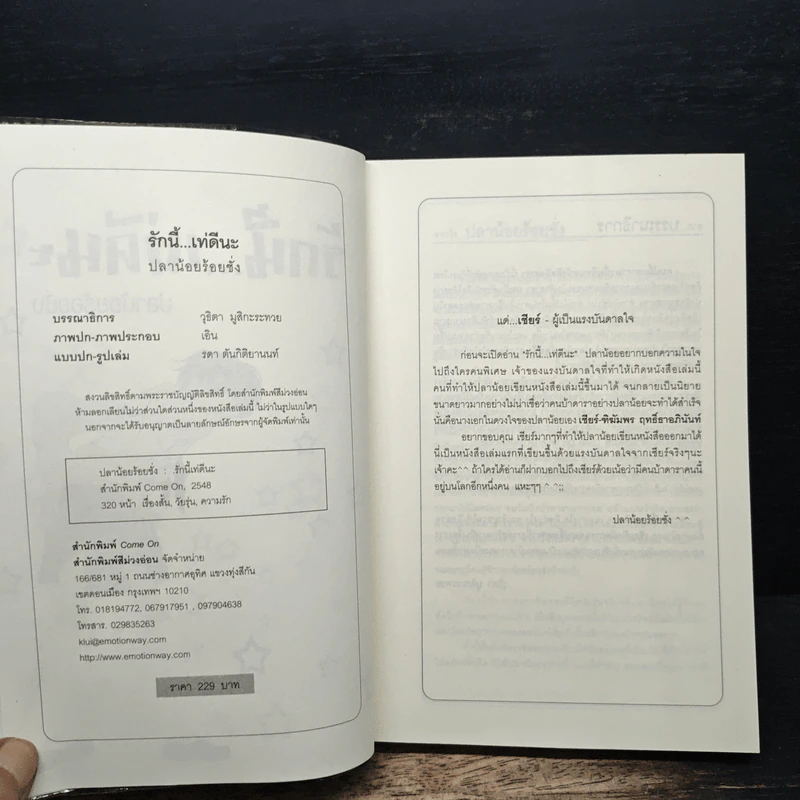 รักนี้...เท่ดีนะ
ปลาน้อยร้อยชั่ง
บรรณาธิการ วุธิตา มูสิกะระทวย
ภาพปก-ภาพประกอบ เอิน
แบบปก-รูปเล่ม รดา ตันกิติยานนท์
สงวนลิขสิทธิ์ตามพระราชบัญญัติลิขสิทธิ์ โดยสำนักพิมพ์สีม่วงอ่อน
ห้ามลอกเลียนไม่ว่าส่วนใดส่วนหนึ่งของหนังสือเล่มนี้ ไม่ว่าในรูปแบบใดๆ
นอกจากจะได้รับอนุญาตเป็นลายลักษณ์อักษรจากผู้จัดพิมพ์เท่านั้น
ปลาน้อยร้อยชั่ง : รักนี้เท่ดีนะ
สำนักพิมพ์ Come On, 2548
320 หน้า เรื่องสั้น, วัยรุ่น, ความรัก
สำนักพิมพ์ Come On
สำนักพิมพ์สีม่วงอ่อน จัดจำหน่าย
166/681 หมู่ 1 ถนนช่างอากาศอุทิศ แขวงทุ่งสีกัน
เขตดอนเมือง กรุงเทพฯ 10210
โทร. 018194772, 067917951 , 097904638
โทรสาร. 029835263
klui@emotionway.com
http://www.emotionway.com
ราคา 229 บาท
แด่...เชียร์ - ผู้เป็นแรงบันดาลใจ
ก่อนจะเปิดอ่าน "รักนี้...เท่ดีนะ" ปลาน้อยอยากบอกความในใจ
ไปถึงใครคนพิเศษ เจ้าของแรงบันดาลใจที่ทำให้เกิดหนังสือเล่มนี้
คนที่ทำให้ปลาน้อยเขียนหนังสือเล่มนี้ขึ้นมาได้ จนกลายเป็นนิยาย
ขนาดยาวมากอย่างไม่น่าเชื่อว่าคนบ้าดาราอย่างปลาน้อยจะทำได้สำเร็จ
นั่นคือนางเอกในดวงใจของปลาน้อยเอง เชียร์-ฑิฆัมพร ฤทธิ์ธาอภินันท์
อยากขอบคุณ เชียร์มากๆที่ทำให้ปลาน้อยเขียนหนังสือออกมาได้
นี่เป็นหนังสือเล่มแรกที่เขียนขึ้นด้วยแรงบันดาลใจจากเชียร์จริงๆนะ
เจ้าคะ^^ ถ้าใครได้อ่านก็ฝากบอกไปถึงเชียร์ด้วยเน้อว่ามีคนบ้าดาราคนนี้
อยู่บนโลกอีกหนึ่งคน แหะๆๆ ^ ^;;
ปลาน้อยร้อยชั่ง ^ ^